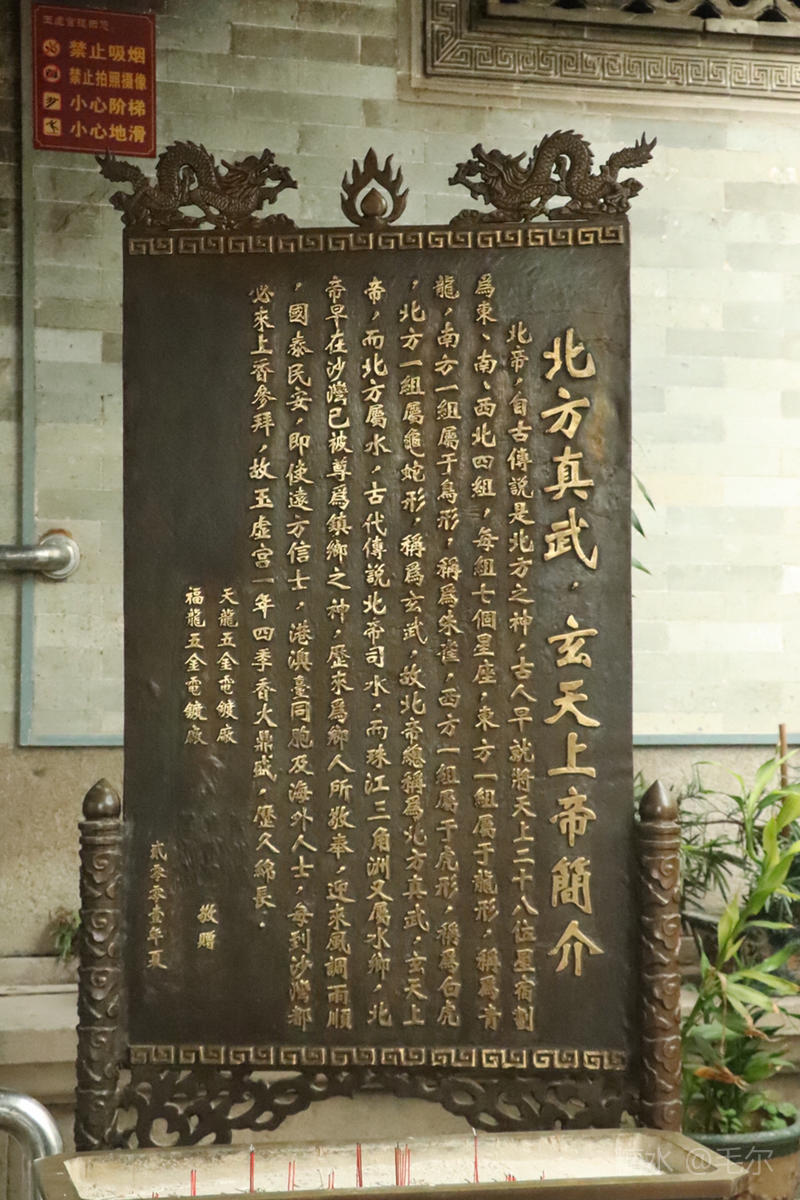 玉虚宫
禁止吸烟
禁止拍照摄像
小心阶梯
小心地滑
北方真武．玄天上帝簡介
北帝，自古傳説是北方之神，古人早就將天上二十八位星宿劃
爲東、南、西北四組，每組七個星座，東方一組屬于龍形，稱爲青
龍，南方一組屬于鳥形，稱爲朱雀，西方一組屬于虎形，稱爲白虎
，北方一組屬龜蛇形，稱爲玄武，故北帝總稱爲北方真武，玄天上
帝，而北方屬水，古代傳説北帝司水，而珠江三角洲又屬水鄉，北
帝早在沙灣已被尊爲鎮鄉之神，歷來爲鄉人所敬奉，迎來風調雨順
，國泰民安，即使遠方信士，港澳臺同胞及海外人士，每到沙灣都
必來上香參拜，故玉虛宫一年四季香火鼎盛，歷久綿長．
天龍五金電鍍廠
福龍五金電鍍廠
敬贈
貳零零壹年夏
水 @毛尔